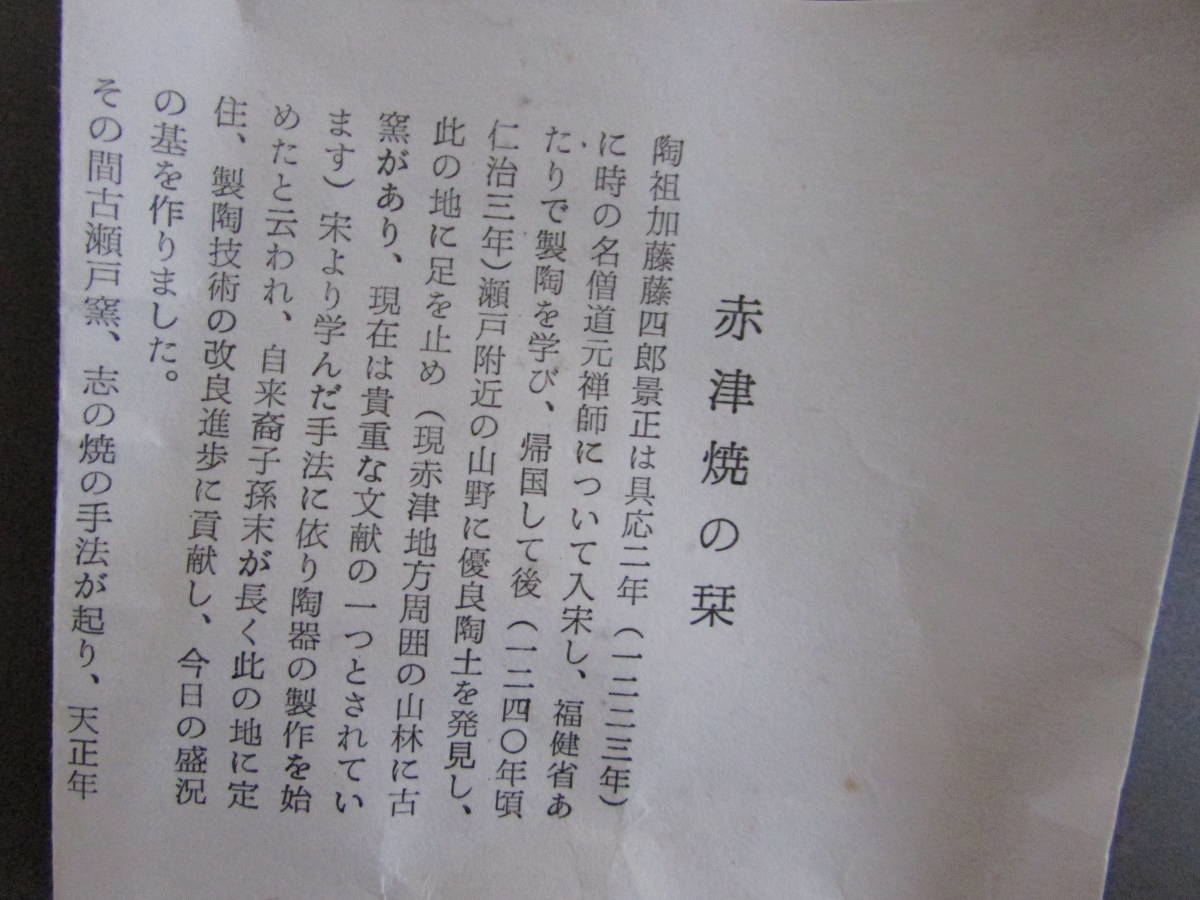 赤津焼の栞
陶祖加藤藤四郎景正は具応二年（一二二三年）
に時の名僧道元禅師について入宋し、福健省あ
たりで製陶を学び、帰国して後（一二四〇年頃
仁治三年）瀬戸附近の山野に優良陶土を発見し、
此の地に足を止め（現赤津地方周囲の山林に古
窯があり、現在は貴重な文献の一つとされてい
ます）宋より学んだ手法に依り陶器の製作を始
めたと云われ、自来裔子孫末が長く此の地に定
住、製陶技術の改良進歩に貢献し、今日の盛況
の基を作りました。
その間古瀬戸窯、志の焼の手法が起り、天正年